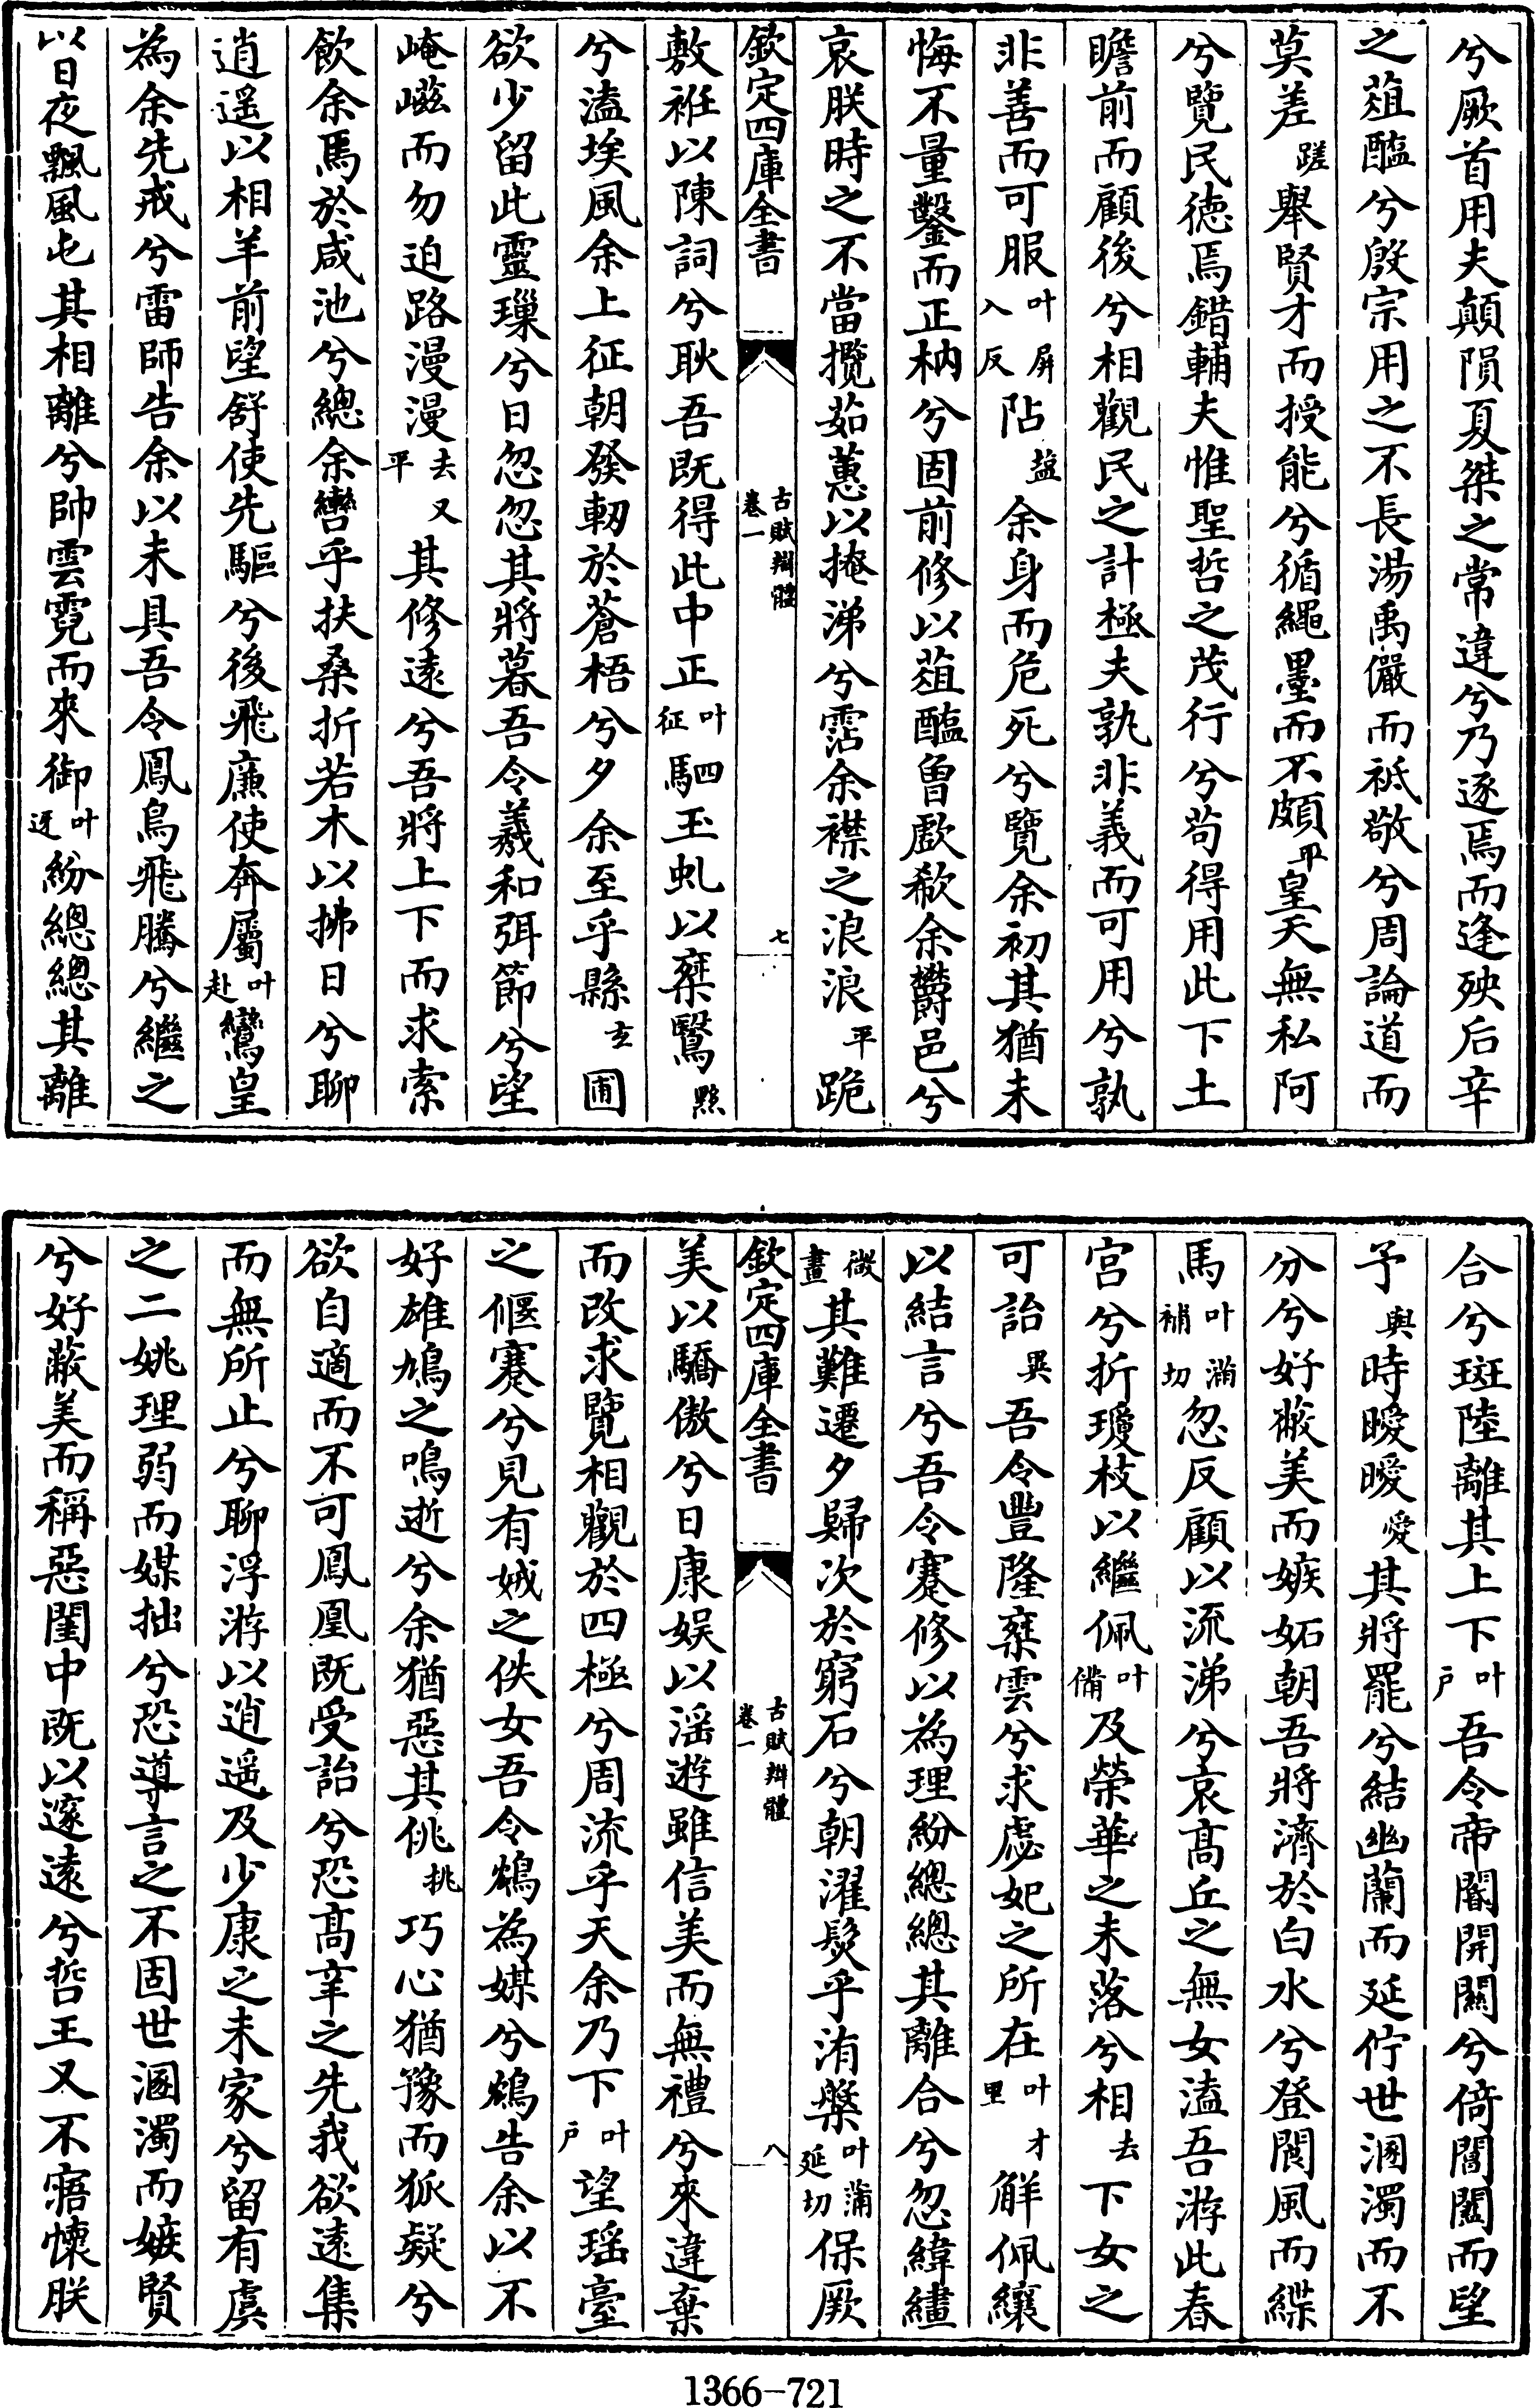 兮厥首用夫顛隕夏桀之常違兮乃逐焉而逢殃后辛
之葅醢兮殷宗用之不長湯禹儼而祗敬兮周論道而
莫差蹉舉賢才而授能兮循繩墨而不頗平皇天無私阿
兮覽民徳焉錯輔夫惟聖哲之茂行兮茍得用此下土
瞻前而顧後兮相觀民之計極夫孰非義而可用兮孰
非善而可服叶屏入反阽鹽余身而危死兮覽余初其猶未
悔不量鑿而正枘兮固前修以葅醢曾歔欷余欝邑兮
哀朕時之不當攬茹蕙以掩涕兮霑余襟之浪浪平跪
欽定四庫全書 古賦辯體 卷一 七
敷衽以陳詞兮耿吾既得此中正叶征駟玉虬以椉鷖㷼
兮溘埃風余上征朝發軔於蒼梧兮夕余至乎縣玄圃
欲少留此靈璅兮日忽忽其將暮吾令羲和弭節兮望
崦嵫而勿迫路漫漫去又平其修逺兮吾將上下而求索
飲余馬於咸池兮總余轡乎扶桑折若木以拂日兮聊
逍遥以相羊前望舒使先驅兮後飛廉使奔屬叶赴鸞皇
為余先戒兮雷師告余以未具吾令鳳鳥飛騰兮繼之
以日夜飄風屯其相離兮帥雲霓而來御叶迓紛總總其離
合兮斑陸離其上下叶戶吾令帝閽開關兮倚閶闔而望
予與時曖曖愛其將罷兮結幽蘭而延佇世溷濁而不
分兮好蔽美而嫉妬朝吾將濟於白水兮登閬風而緤
馬叶滿補切忽反顧以流涕兮哀髙丘之無女溘吾游此春
宫兮折瓊枝以繼佩叶備及榮華之未落兮相去下女之
可詒異吾令豐隆椉雲兮求虙妃之所在叶才里解佩纕
以結言兮吾令蹇修以為理紛總總其離合兮忽緯繣
徽畫其難遷夕歸次於窮石兮朝濯髮乎洧槃叶蒲延切保厥
欽定四庫全書 古賦辯體 卷一 八
美以驕傲兮日康娱以滛遊雖信美而無禮兮來違棄
而改求覽相觀於四極兮周流乎天余乃下叶戶望瑶臺
之偃蹇兮見有娀之佚女吾令鴆為媒兮鴆告余以不
好雄鳩之鳴逝兮余猶惡其佻挑巧心猶豫而狐疑兮
欲自適而不可鳳凰既受詒兮恐髙辛之先我欲逺集
而無所止兮聊浮游以逍遥及少康之未家兮留有虞
之二姚理弱而媒拙兮恐導言之不固世溷濁而嫉賢
兮好蔽美而稱惡閨中既以邃逺兮哲王又不寤懷朕
1366-721